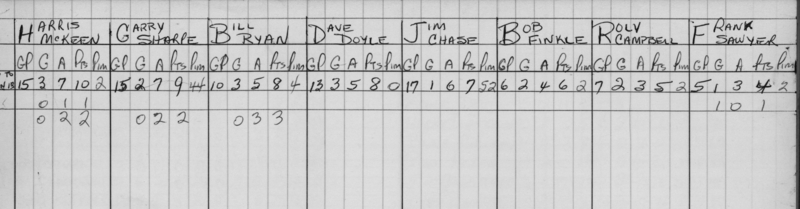 HARRIS GARRY BILL DAVE JIM BOB ROLY FRANK
McKEEN SHARPE RYAN DOYLE CHASE FINKLE CAMPBELL SAWYER
GP G A Pts Pim GP G A Pts Pim GP G A Pts Pim GP G A Pts Pim GP G A Pts Pim GP G A Pts Pim GP G A Pts Pim GP G A Pts Pim
TO 15 3 7 10 2 15 2 7 9 44 10 3 5 8 4 13 3 5 8 0 17 1 6 7 52 6 2 4 6 2 7 2 3 5 2 5 1 3 4 2
0 1 1 1 0 1
0 2 2 0 2 2 0 3 3